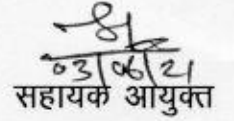 03/06/21
सहायक आयुक्त